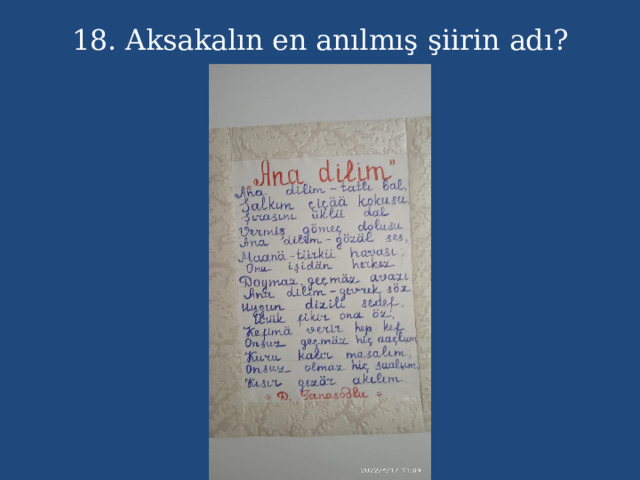 18. Aksakalın en anılmış şiirin adı?
„Ana dilim”
Ana dilim – tatlı bal,
Salkım çiçää kokusu,
Şırasını üklü dal
Vermiş gömeç dolusu
Ana dilim – gözäl ses,
Maanä - türkü havası;
Onu işidän herkez
Doymaz, geçmäz avazı
Ana dilim – gevrek söz
Uygun dizili sedef,
Üük fikir ona öz,
Kefimä verir hep kef
Onsuz geçmäz hiç aaçlıım
Kuru kalır masalım,
Onsuz olmaz hiç saalıım
Kısır gezär akılım
D. Tanasoglu
2022/4/17 11:04